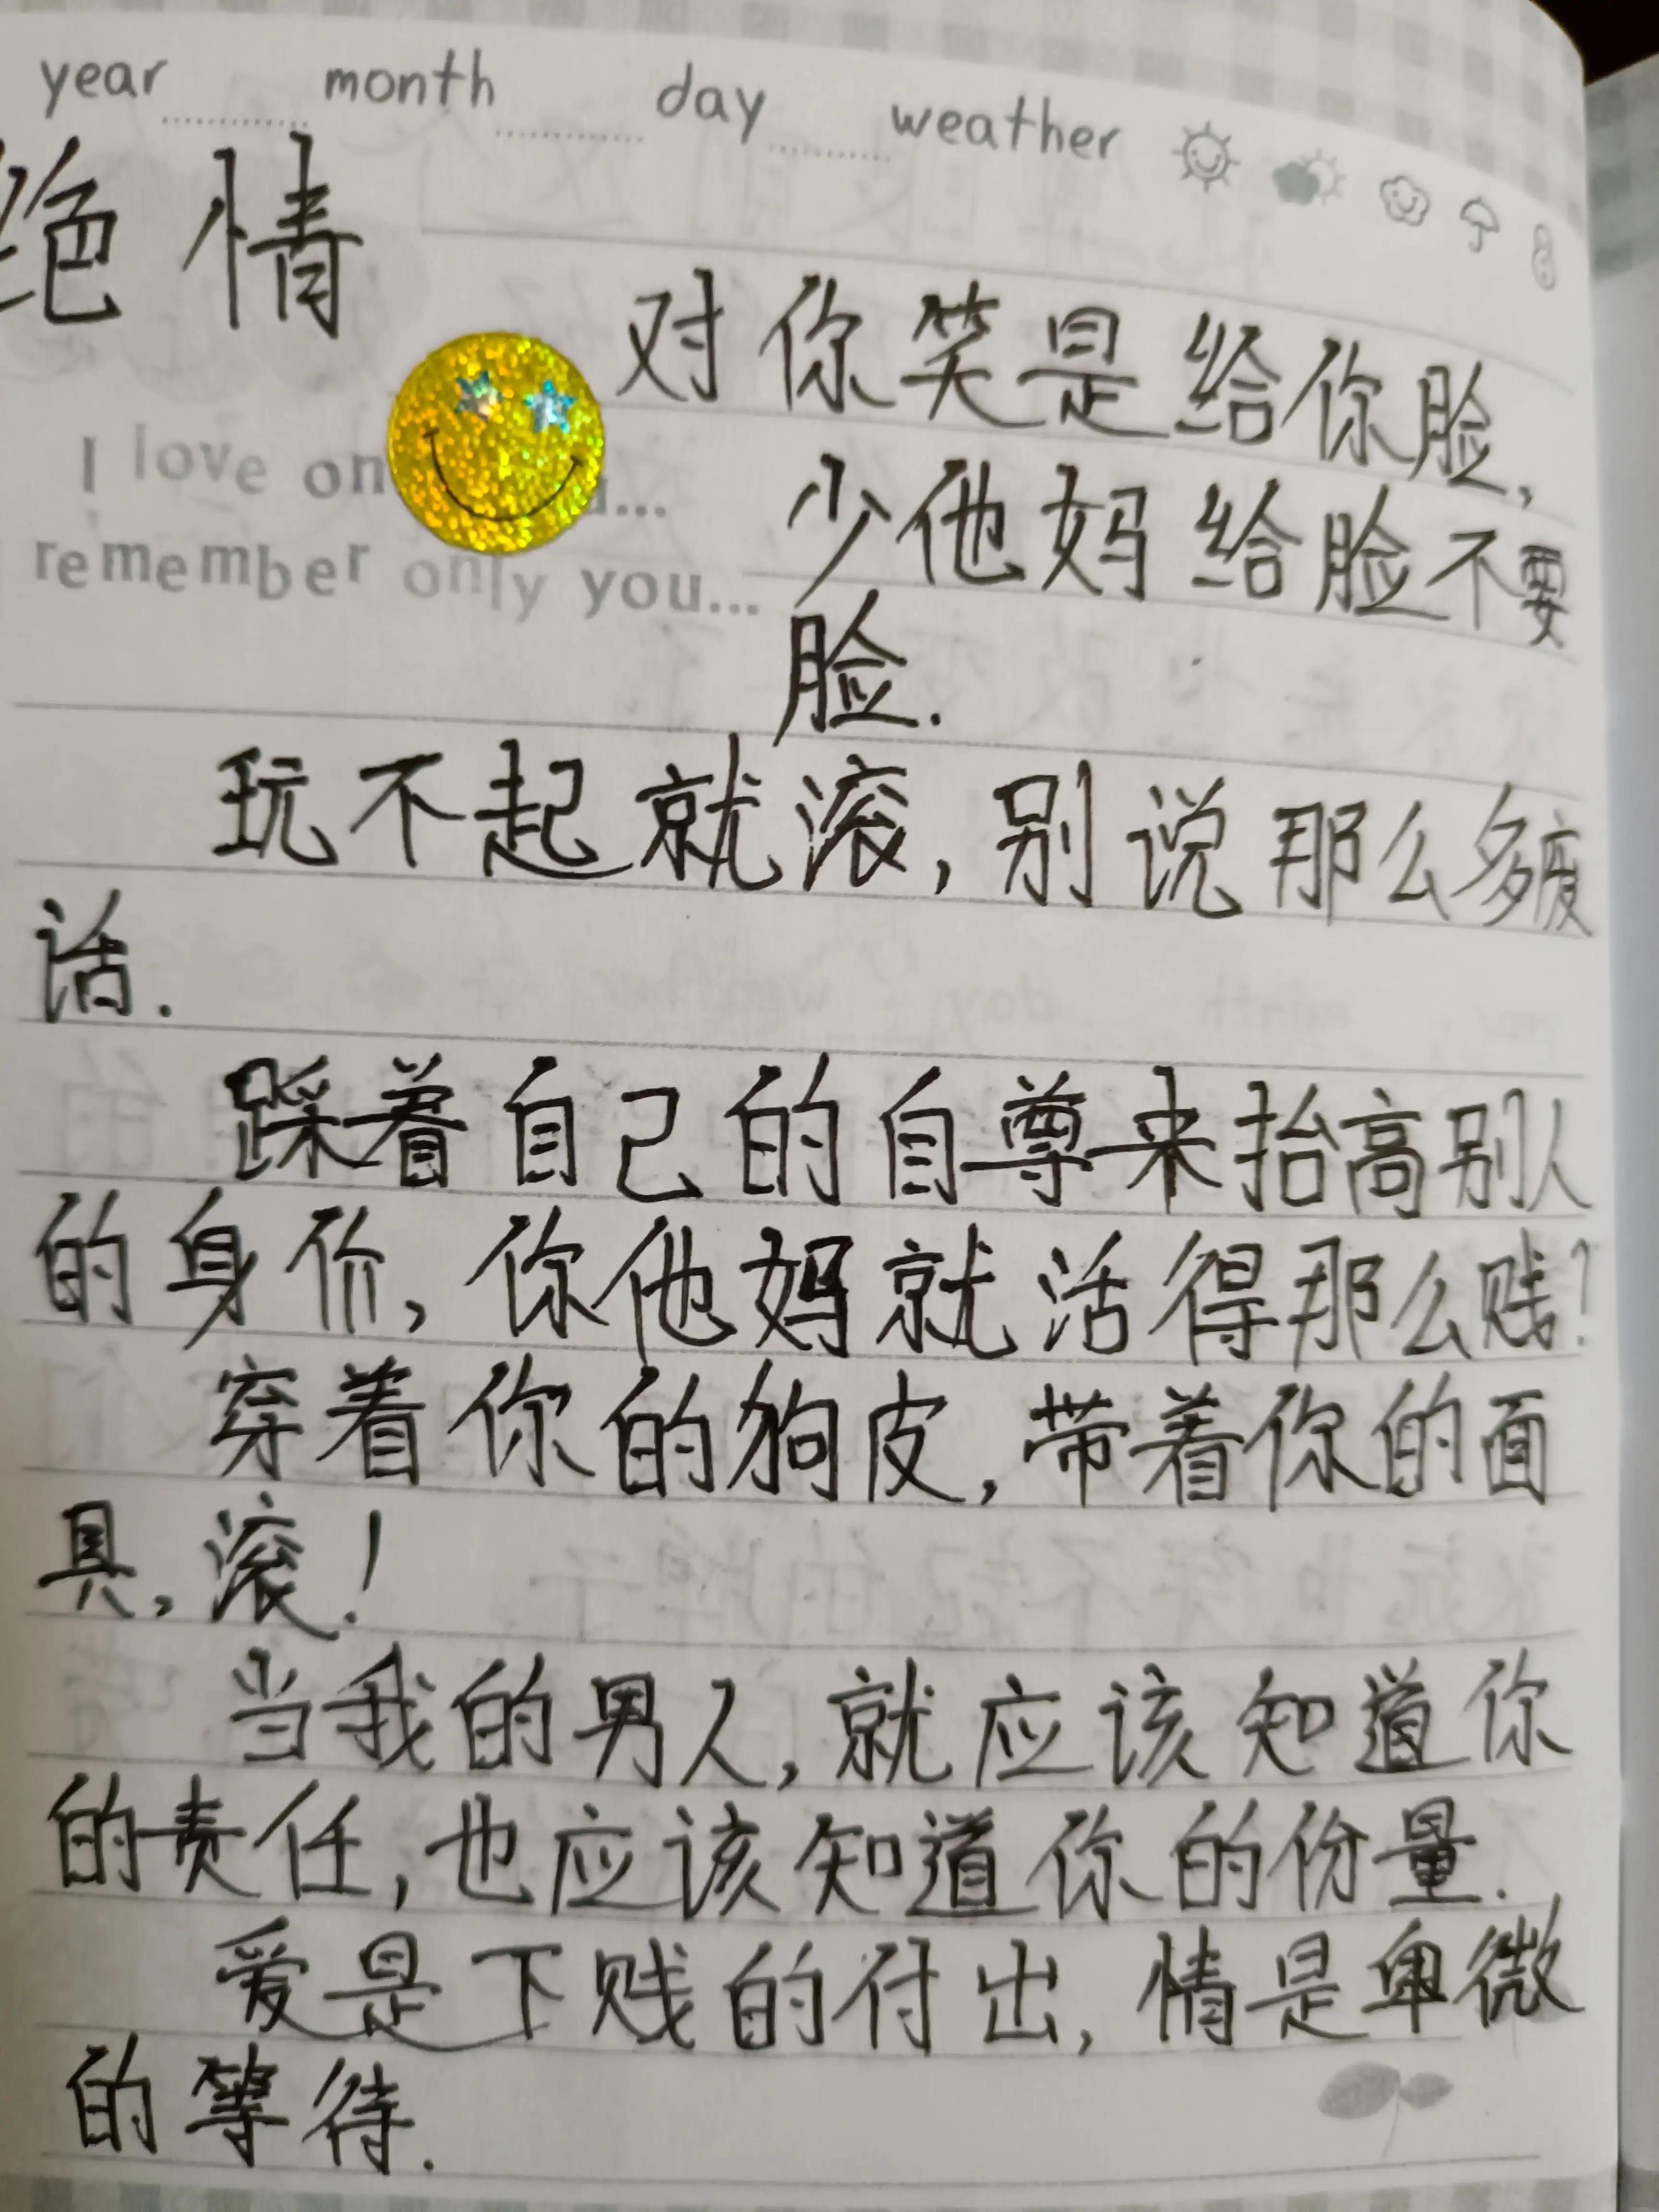 year month day weather
绝情
对你笑是给你脸,
I love on
少他妈给脸不要
remember only you...
脸.
玩不起就滚,别说那么多废
话.
踩着自己的自尊来抬高别人
的身价,你他妈就活得那么贱?
穿着你的狗皮,带着你的面
具,滚!
当我的男人,就应该知道你
的责任,也应该知道你的份量.
爱是下贱的付出,情是卑微
的等待.